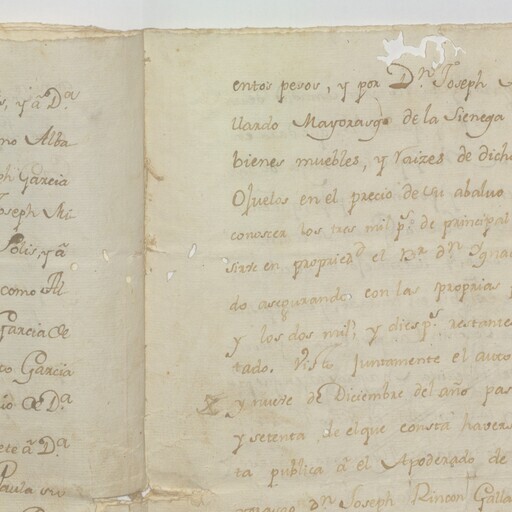 s, y â D.ª
no Alba
ph Garcia
Joseph Mi-
Solis, y â
como Al-
Garcia de
to Garcia
io de D.ª
ete â D.ª
Paula su
entos pesos, y por D.ⁿ Joseph
llardo Mayorasgo de la Sienega
bienes muebles, y raizes de dicho
Ojuelos en el precio de su abaluo
conocer los tres mil p.ˢ de principal
sirve en propried.ᵈ el Br d.ⁿ Ygna
do asegurando con las proprias
y los dos mil, y dies p.ˢ restante
tado. Visto Juntamente el auto
y nueve de Diciembre del año pas
y setenta de el que consta havers
ta publica â el Apoderado de
D.ⁿ Joseph Rincon Galla